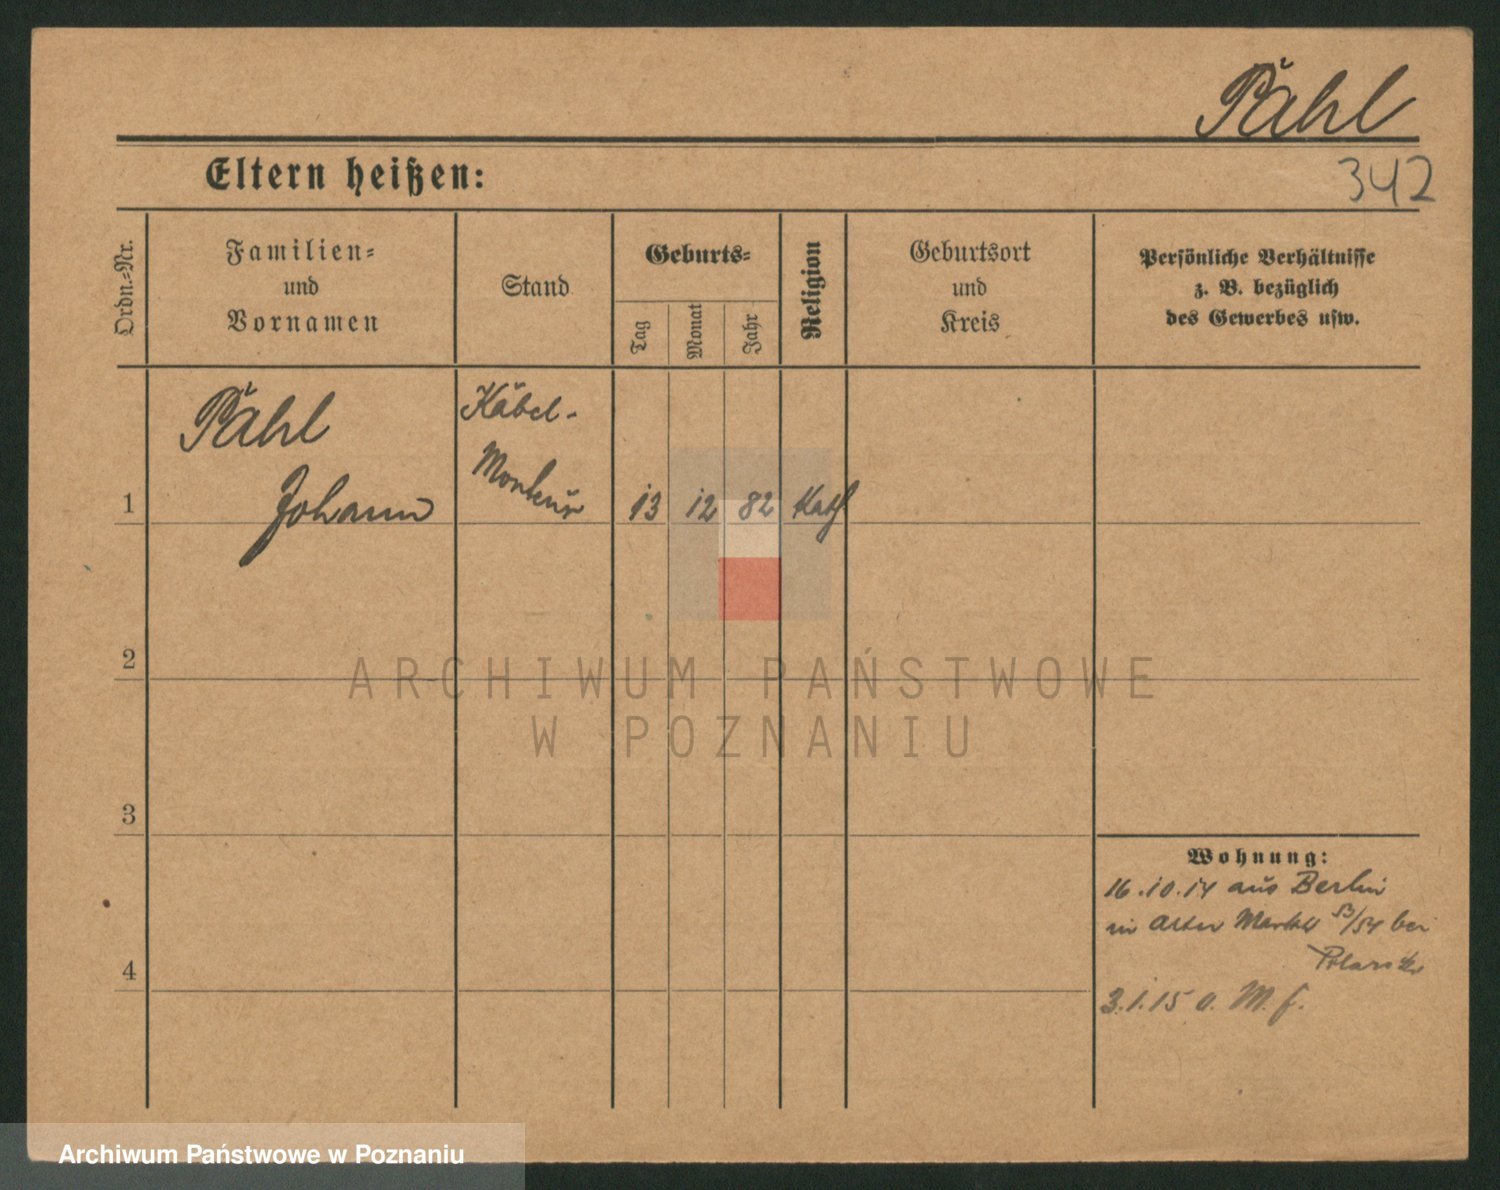 Pähl
Eltern heißen:
342
Ordn.-Nr.
Familien-
und
Vornamen
Stand
Geburts-
Tag
Monat
Jahr
Religion
Geburtsort
und
Kreis
Persönliche Verhältnisse
z. B. bezüglich
des Gewerbes usw.
Pähl
Johann
Kabel-
Monteur
1
13
12
82
Kath
2
ARCHIWUM PAŃSTWOWE
W POZNANIU
3
4
Wohnung:
16.10.14 aus Berlin
in Alter Markt 53/54 bei
3.1.15 o. M. f.
Archiwum Państwowe w Poznaniu